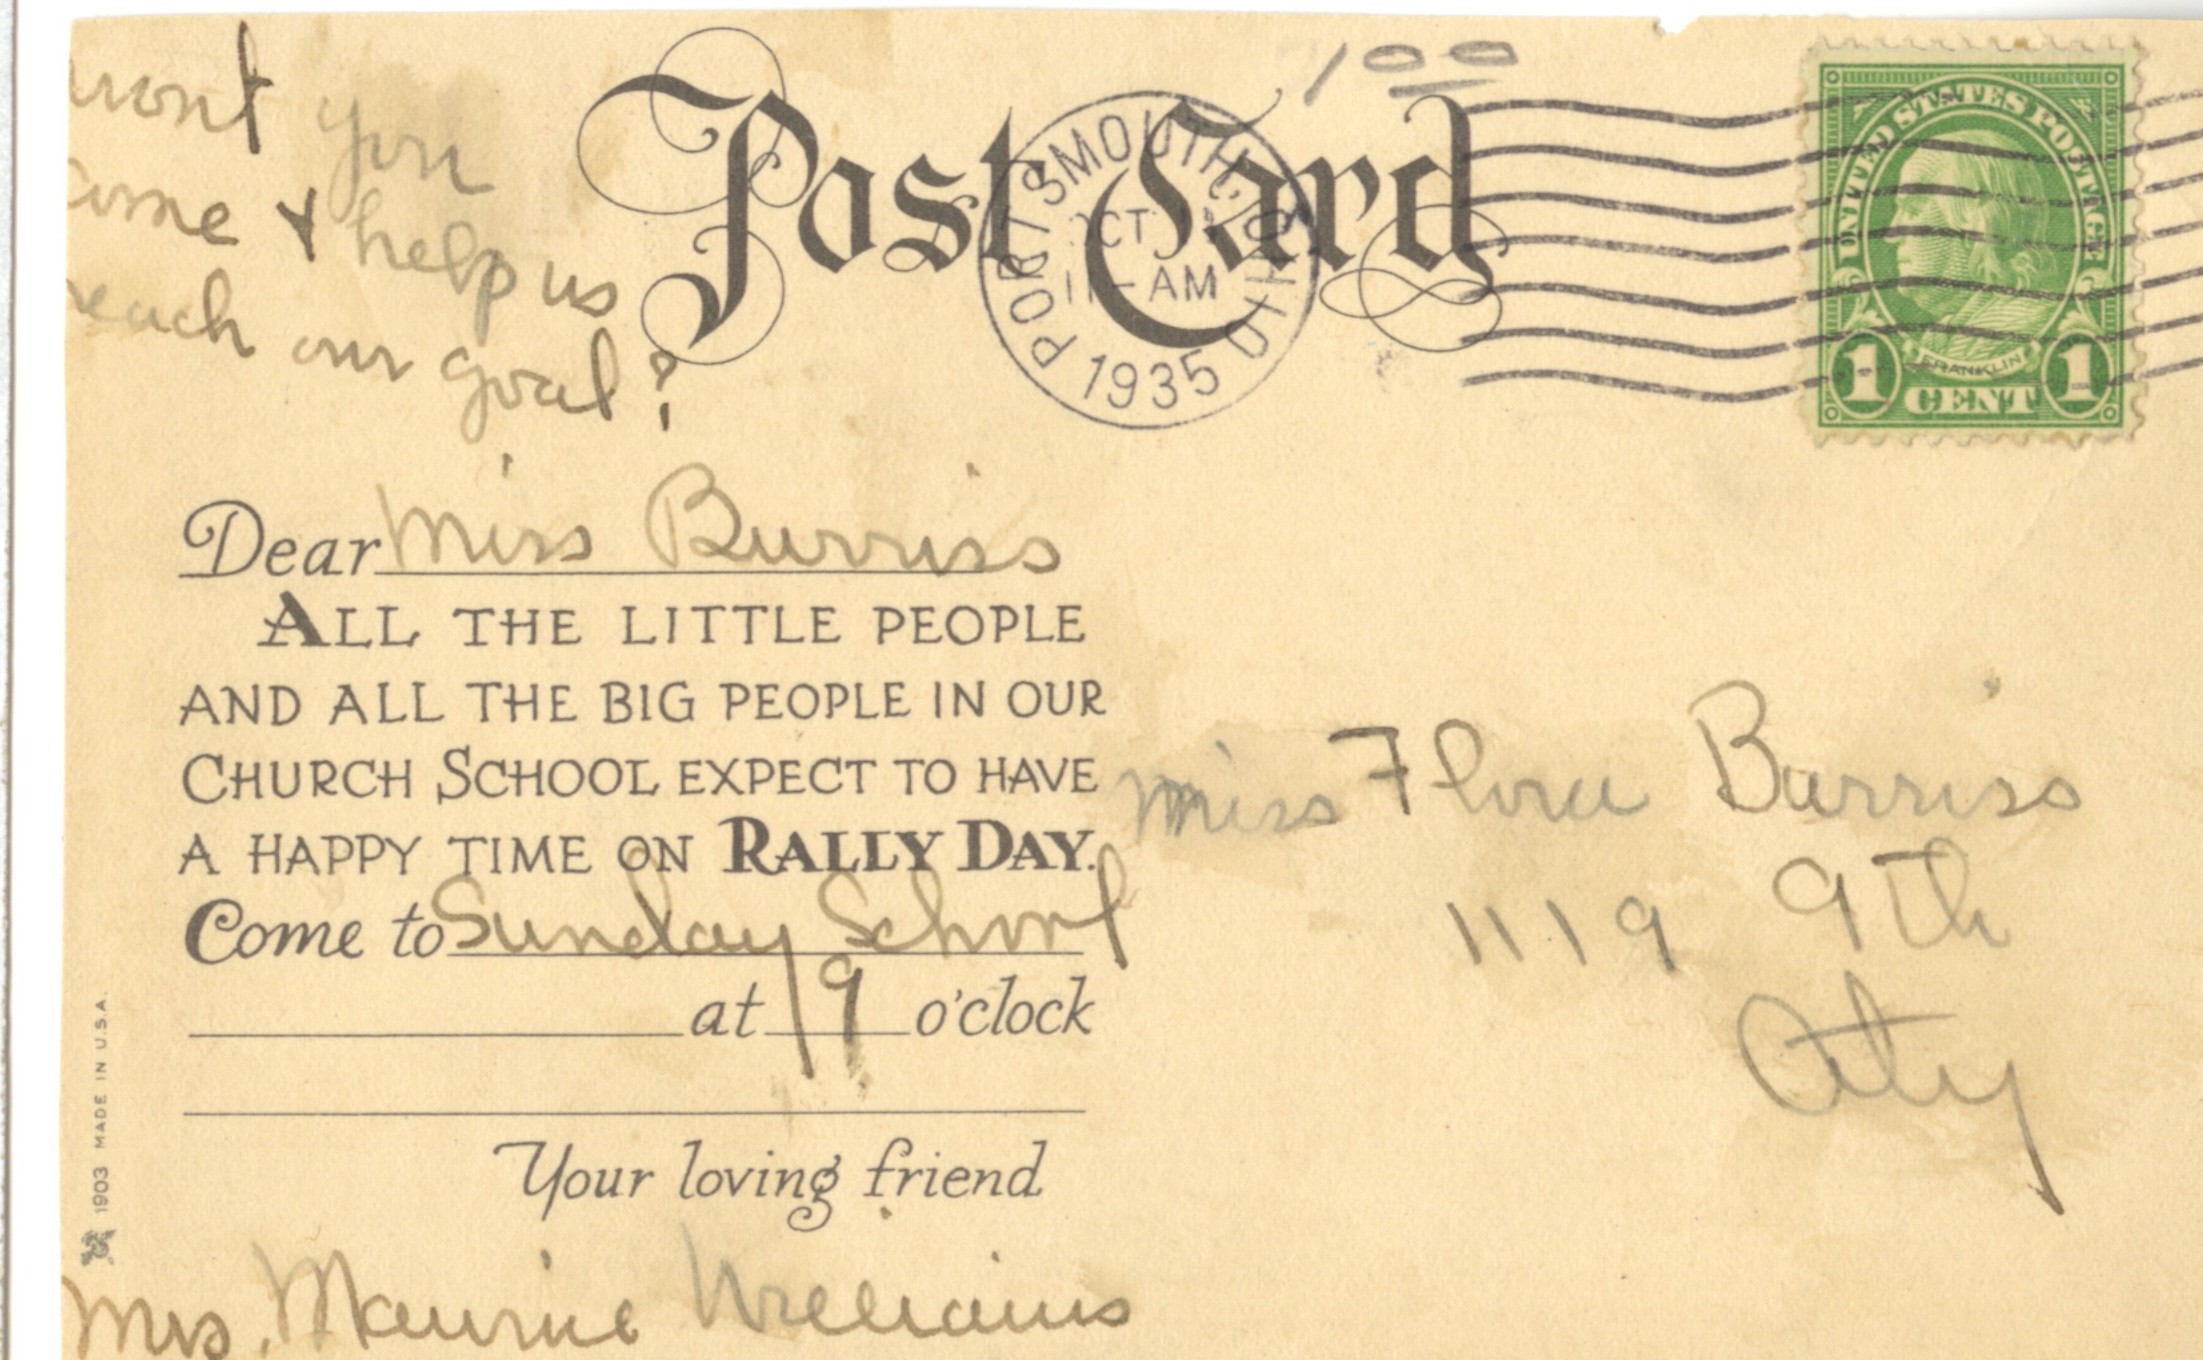 wont you
come & help us
reach our goal?
Post Card
1 00
PORTSMOUTH, OHIO
OCT
11-AM
1935
UNITED STATES POSTAGE
FRANKLIN
1 CENT 1
Dear Miss Burriss
ALL THE LITTLE PEOPLE
AND ALL THE BIG PEOPLE IN OUR
CHURCH SCHOOL EXPECT TO HAVE
A HAPPY TIME ON RALLY DAY.
Come to Sunday School
at 9 o'clock
Your loving friend
Mrs. Maurice Williams
Miss Flora Burriss
1119 9th
City
1903 MADE IN U.S.A.